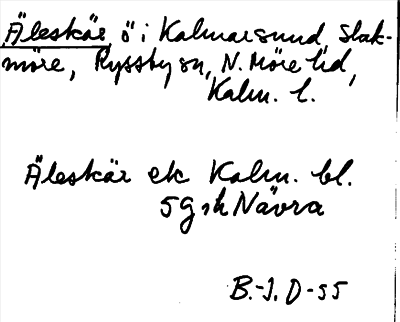 Äleskär, ö i Kalmarsund, Slak-
möre, Ryssby sn, N. Möre hd,
Kalm. l.
Äleskär ek Kalm. bl.
5 G sk Nävra
B.-J. D-55